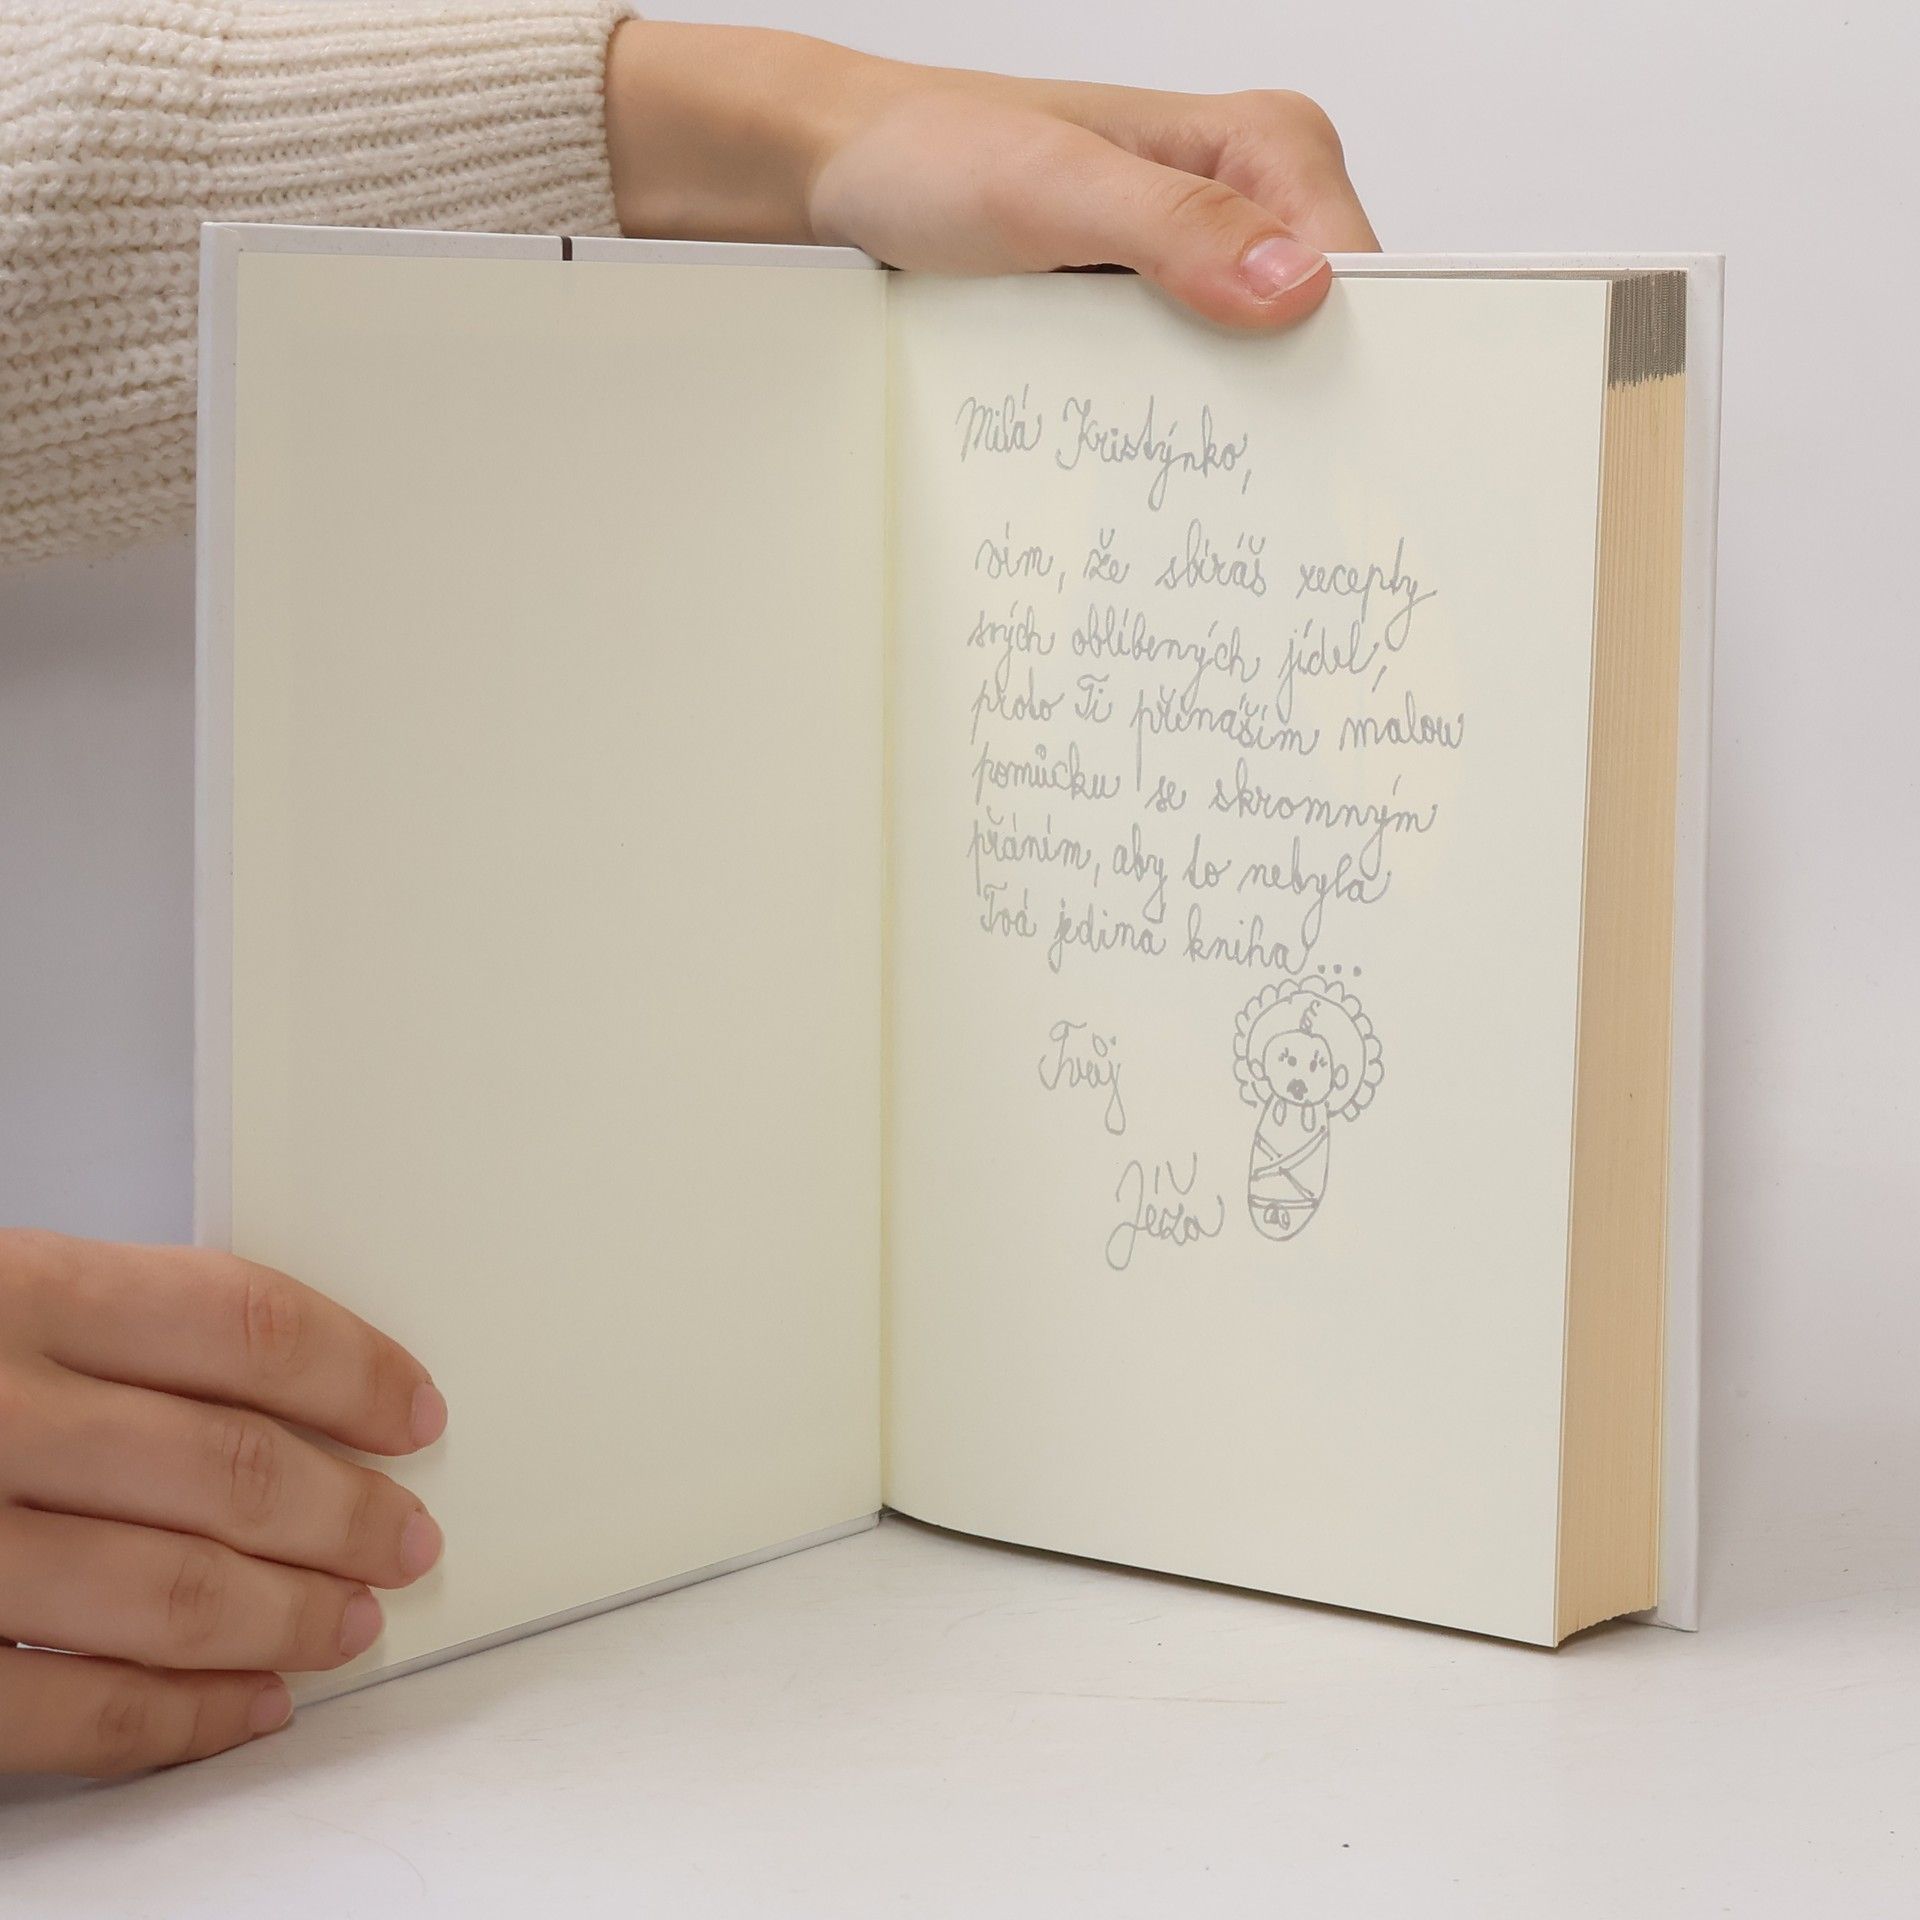 Milá Kristýnko,
vím, že sbíráš recepty
svých oblíbených jídel,
proto Ti přináším malou
pomůcku se skromným
přáním, aby to nebyla
Tvá jediná kniha...
Tvůj
Jéža